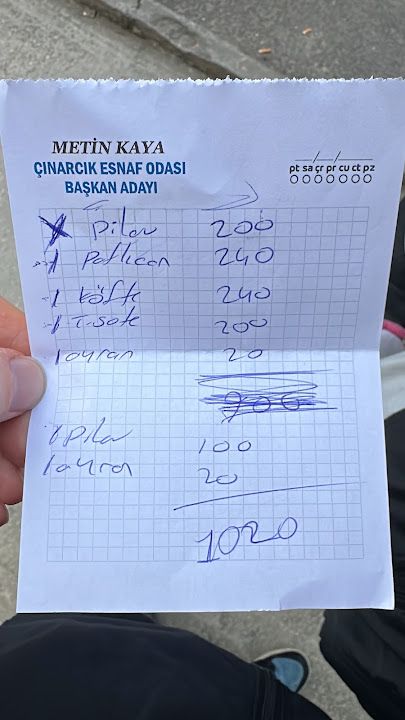 METİN KAYA
ÇINARCIK ESNAF ODASI
BAŞKAN ADAYI
__/__/__
pt sa çr pr cu ct pz
Pilav 200
1 Patlıcan 240
1 köfte 240
1 T.sote 200
1 ayran 20
900
1 Pilav 100
1 ayran 20
1020